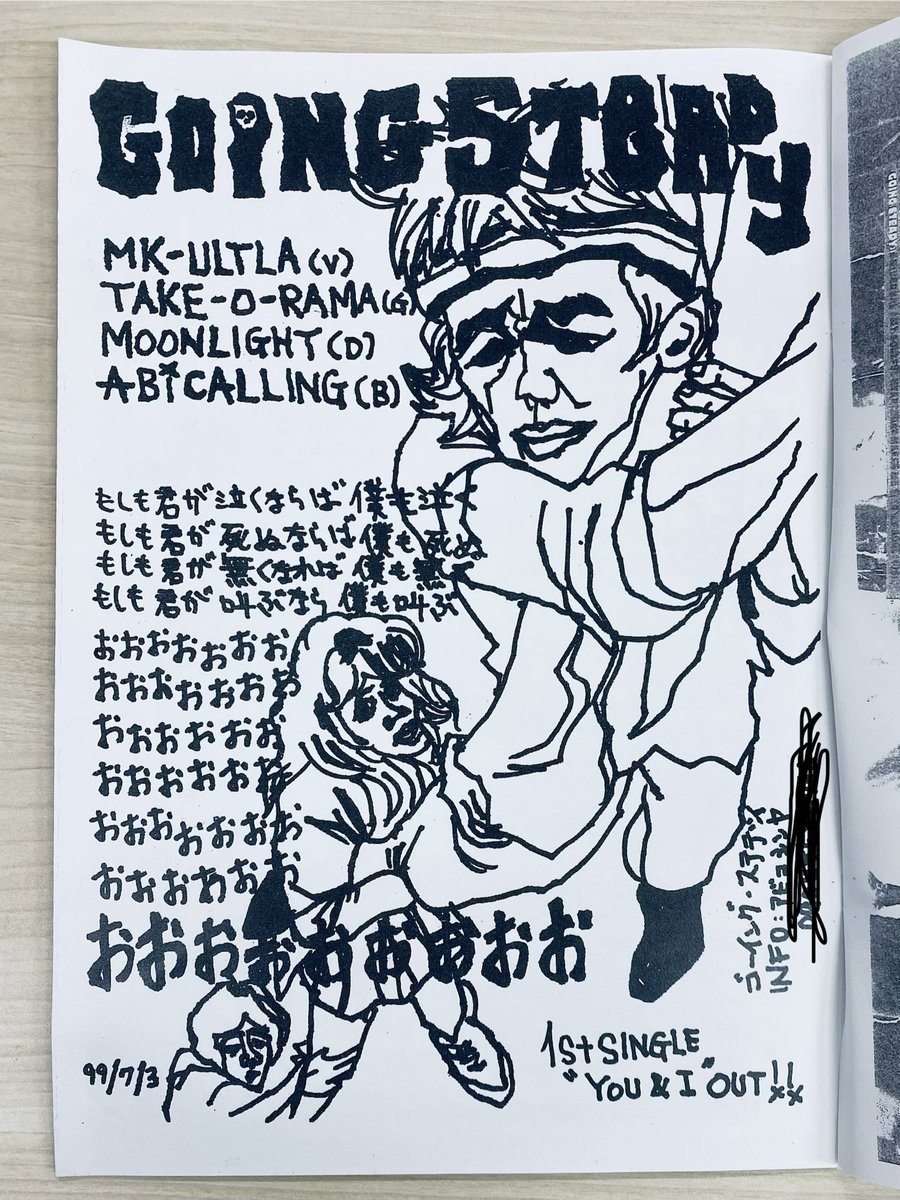 GOING STEADY
MK-ULTLA (V)
TAKE-O-RAMA (G)
MOONLIGHT (D)
ABI CALLING (B)
もしも君が泣くならば 僕も泣く
もしも君が死ぬならば 僕も死ぬ
もしも君が無くなれば 僕も無く
もしも君が叫ぶなら 僕も叫ぶ
おおおおおおお
おおおおおおおお
おおおおおおお
おおおおおおお
おおおおおおおお
おおおおおおお
おおおおおおおおお
99/7/3
ゴーイング・ステディ
INFO:アビコシンヤ
1st SINGLE
"YOU & I" OUT!!
GOING STEADY